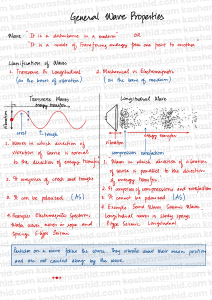 General Wave Properties
Wave : It is a disturbance in a medium OR
It is a means of transferring energy from one point to another.
Classification of Waves
1. Transverse & Longitudinal
(on the basis of vibration)
2. Mechanical vs Electromagnetic
(on the basis of medium)
Transverse Waves
energy transfer
vibration
crest
trough
1. Waves in which direction of
vibration of waves is normal
to the direction of energy transfer
2. It comprises of crest and trough
3. It can be polarised (AS)
4. Examples: Electromagnetic Spectrum,
Water waves, waves on rope and
springs. S-type Seismic
Longitudinal Waves
energy transfer
compression
rarefaction
1. Waves in which direction of vibration
of waves is parallel to the direction
of energy transfer.
2. It comprises of compressions and rarefaction
3. It cannot be polarised (AS)
4. Example: Sound Waves, Seismic Waves
Longitudinal waves in slinky springs
P-type Seismic Longitudinal
Particles in a wave follow the same. They vibrate about their mean position
and are not carried along by the wave.